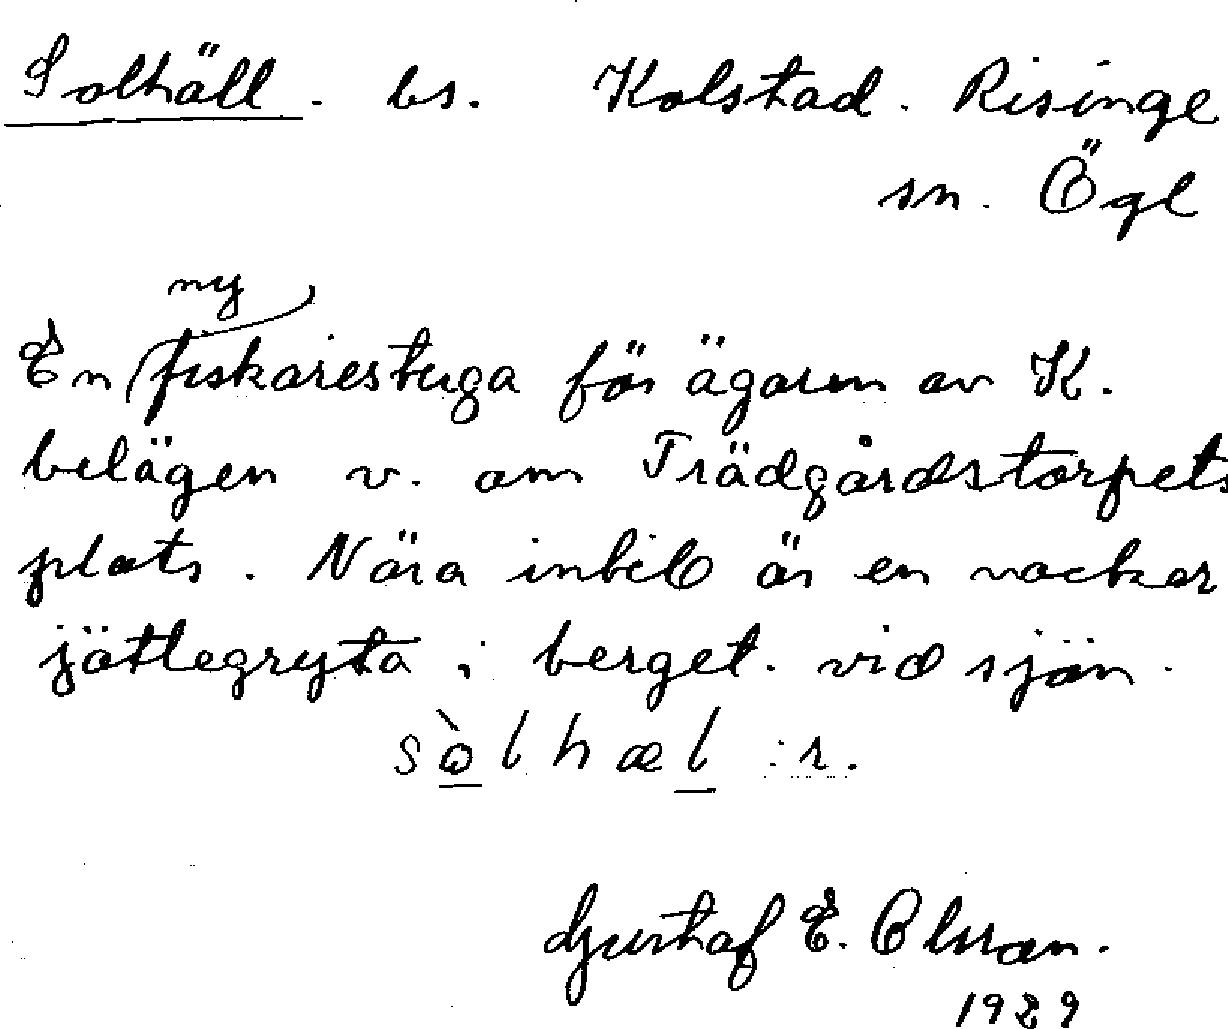 Solhäll. bs. Kolstad. Risinge
sn. Ögl
En ny fiskarestuga för ägaren av K.
belägen v. om Trädgårdstorpets
plats. Nära intill är en vacker
jättegryta i berget. vid sjön.
sòlhæl :r.
Gustaf E. Olsson.
1929